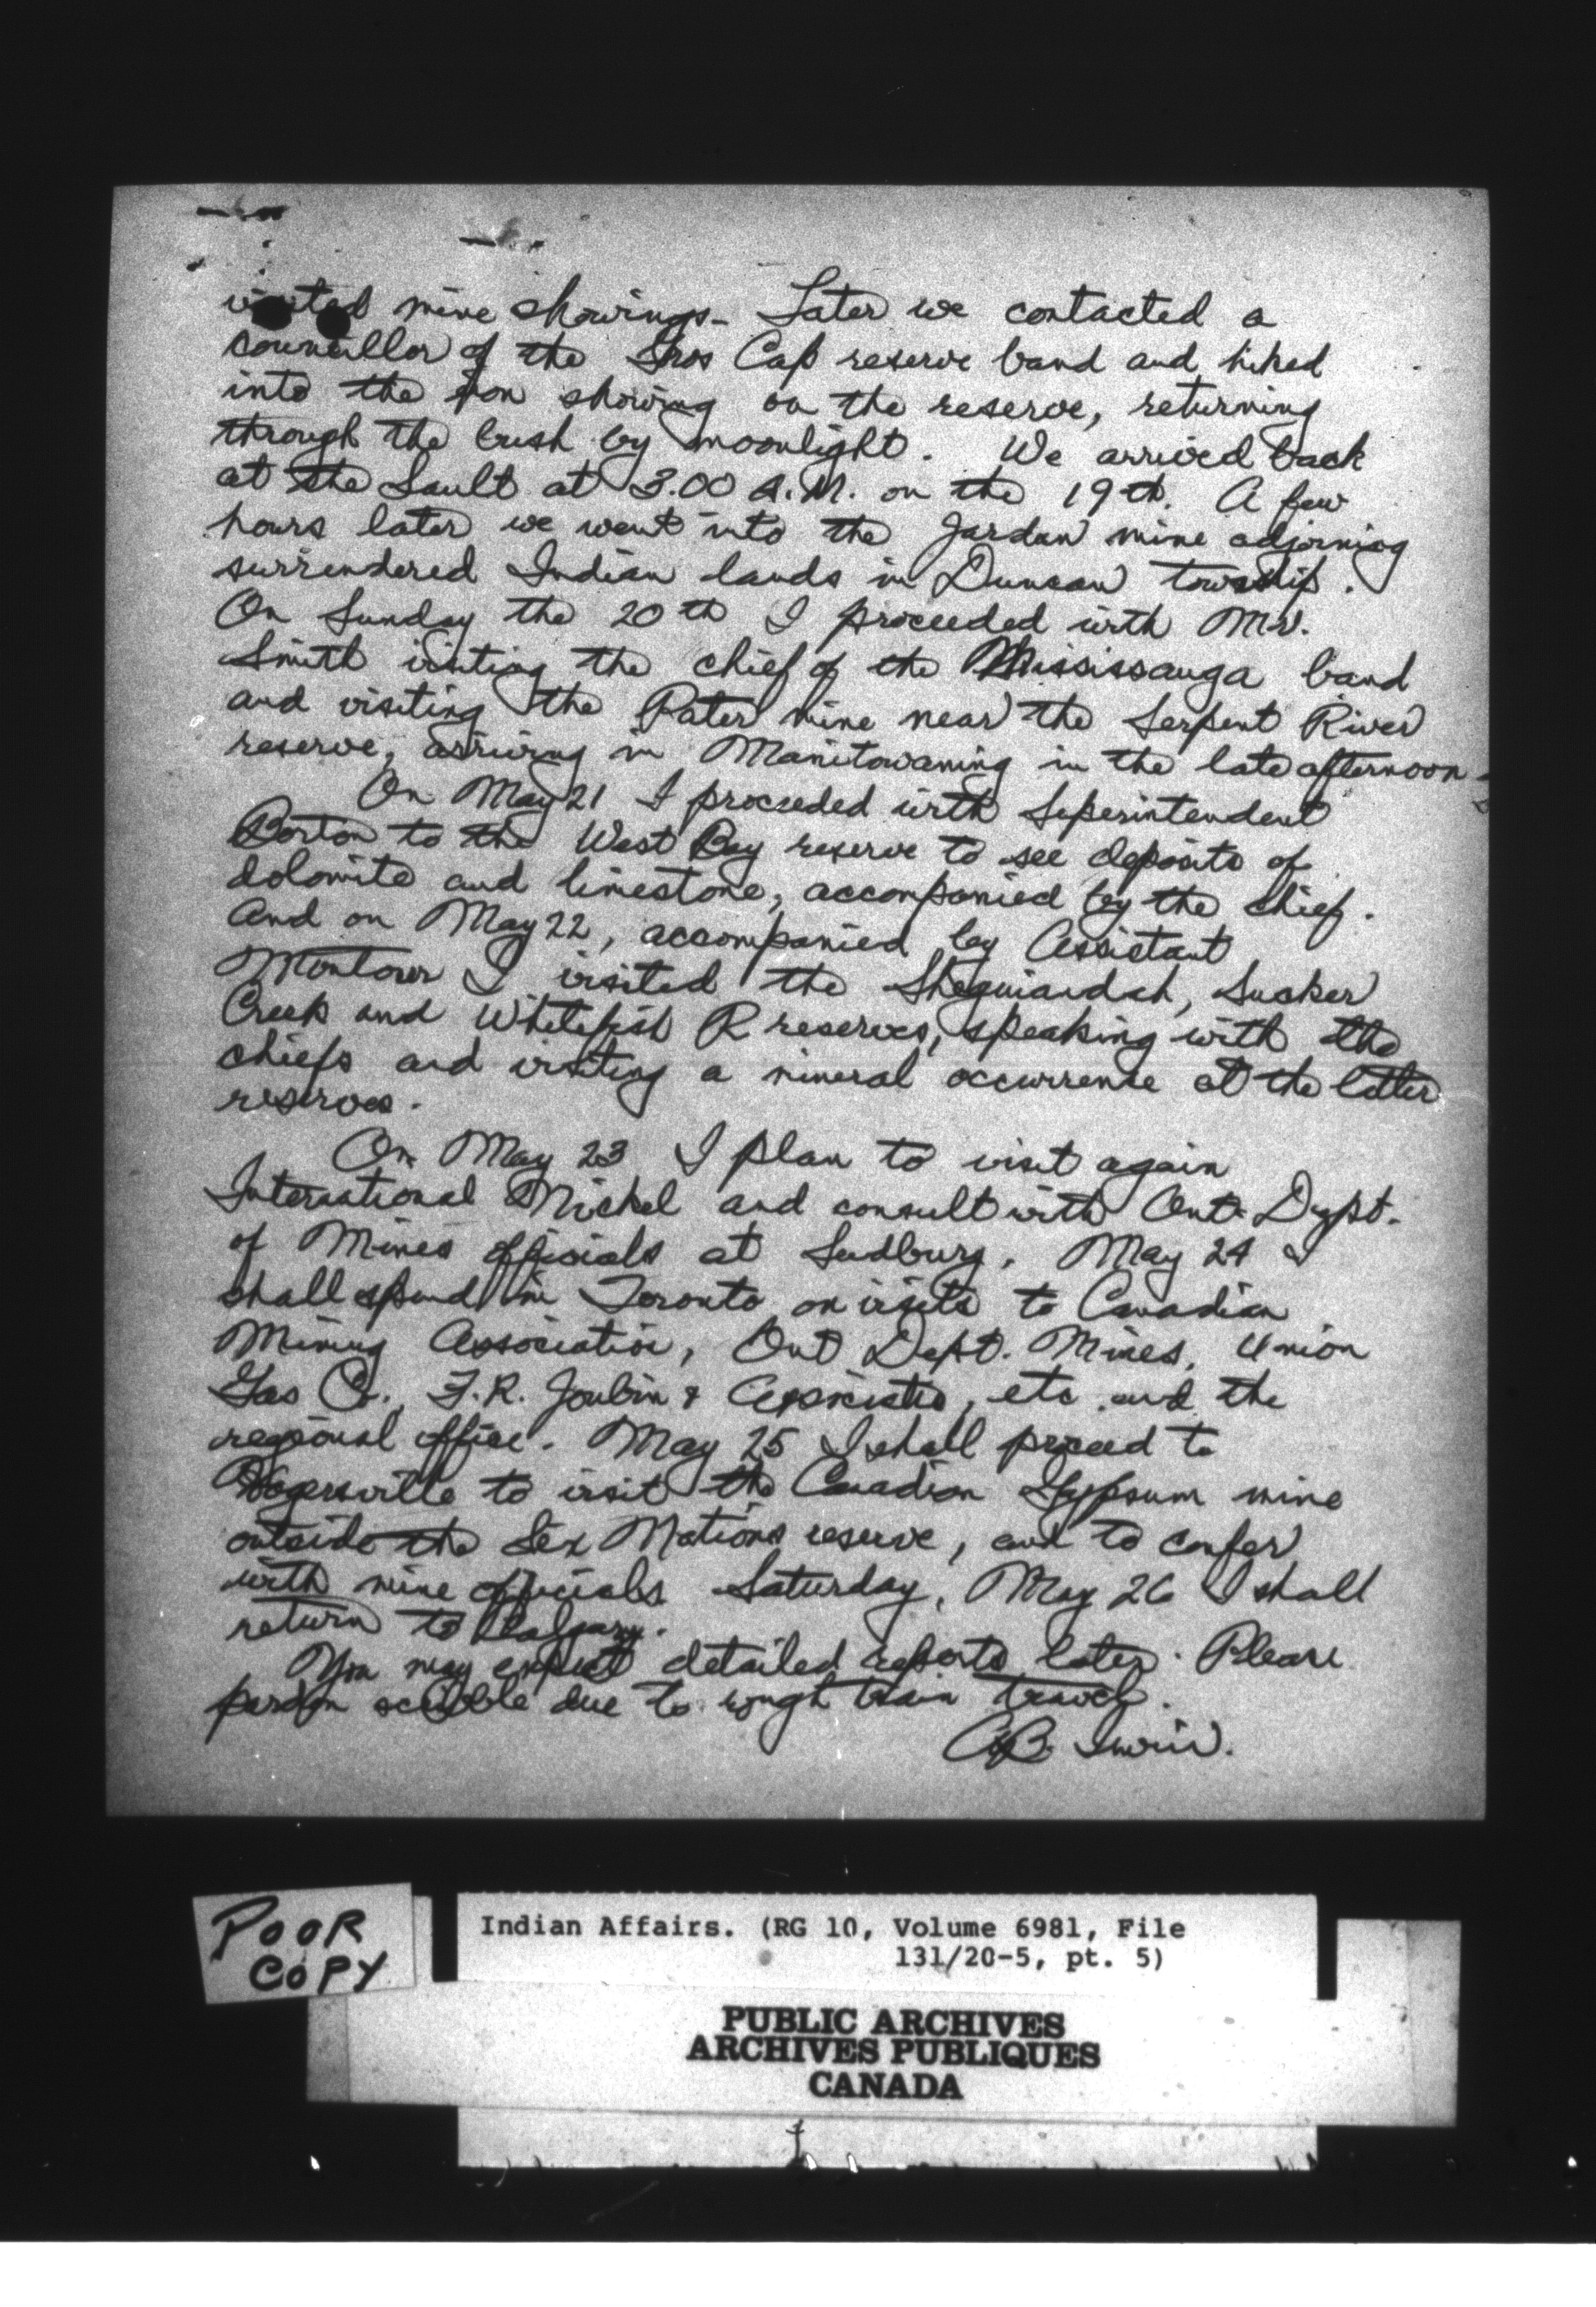 visited mine showings. Later we contacted a
councillor of the Gros Cap reserve band and hiked
into the iron showing on the reserve, returning
through the bush by moonlight. We arrived back
at the Sault at 3.00 A.M. on the 19th. A few
hours later we went into the Jardun mine adjoining
surrendered Indian lands in Duncan township.
On Sunday the 20th I proceeded with Mr.
Smith visiting the chief of the Mississauga band
and visiting the Pater mine near the Serpent River
reserve, arriving in Manitowaning in the late afternoon.
On May 21 I proceeded with Superintendent
to the West Bay reserve to see deposits of
dolomite and limestone, accompanied by the chief.
And on May 22, accompanied by Assistant
Montour I visited the Sheguiandah, Sucker
Creek and Whitefish R reserves, speaking with the
chiefs and visiting a mineral occurrence at the latter
reserves.
On May 23 I plan to visit again
International Nickel and consult with Ont. Dept.
of Mines officials at Sudbury. May 24 I
shall spend in Toronto on visits to Canadian
Mining Association, Ont Dept. Mines, Union
Gas Co., F.R. Joubin & Associates, etc and the
regional office. May 25 I shall proceed to
Hagersville to visit the Canadian Gypsum mine
outside the Six Nations reserve, and to confer
with mine officials. Saturday, May 26 I shall
return to Calgary.
You may expect detailed reports later. Please
pardon scribble due to rough train travel.
Irwin.
POOR
COPY
Indian Affairs. (RG 10, Volume 6981, File
131/20-5, pt. 5)
PUBLIC ARCHIVES
ARCHIVES PUBLIQUES
CANADA